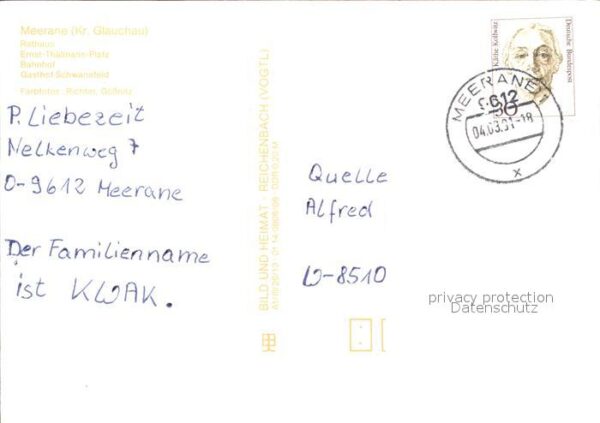 Meerane (Kr. Glauchau)
Rathaus
Ernst-Thälmann-Platz
Bahnhof
Gasthof Schwanefeld
Farbfotos: Richter, Gößnitz
P. Liebezeit
Nelkenweg 7
O-9612 Meerane
Der Familienname
ist KWAK.
BILD UND HEIMAT · REICHENBACH (VOGTL)
Käthe Kollwitz
Deutsche Bundespost
MEERANE 1
9612
04.03.91-18
x
Quelle
Alfred
W-8510
privacy protection
Datenschutz